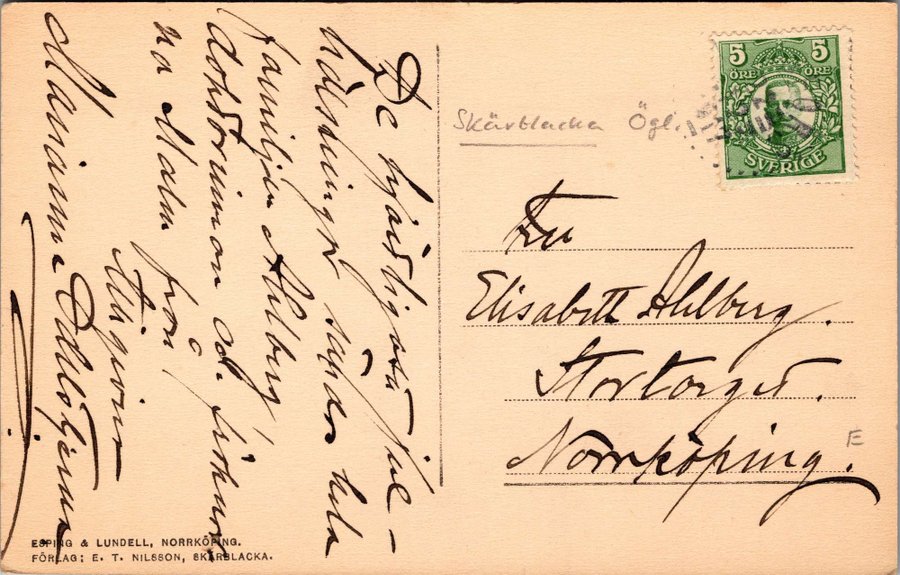 De hjärtligaste jul-
hälsningar sändes hela
familjen Ahlberg,
doktorinnan och fröknar-
na Malm från
Marianne
Skärblacka Ögl.
5 5
ÖRE ÖRE
SVERIGE
Fru
Elisabeth Ahlberg.
Stortorget.
Norrköping.
E
ESPING & LUNDELL, NORRKÖPING.
FÖRLAG; E. T. NILSSON, SKÄRBLACKA.